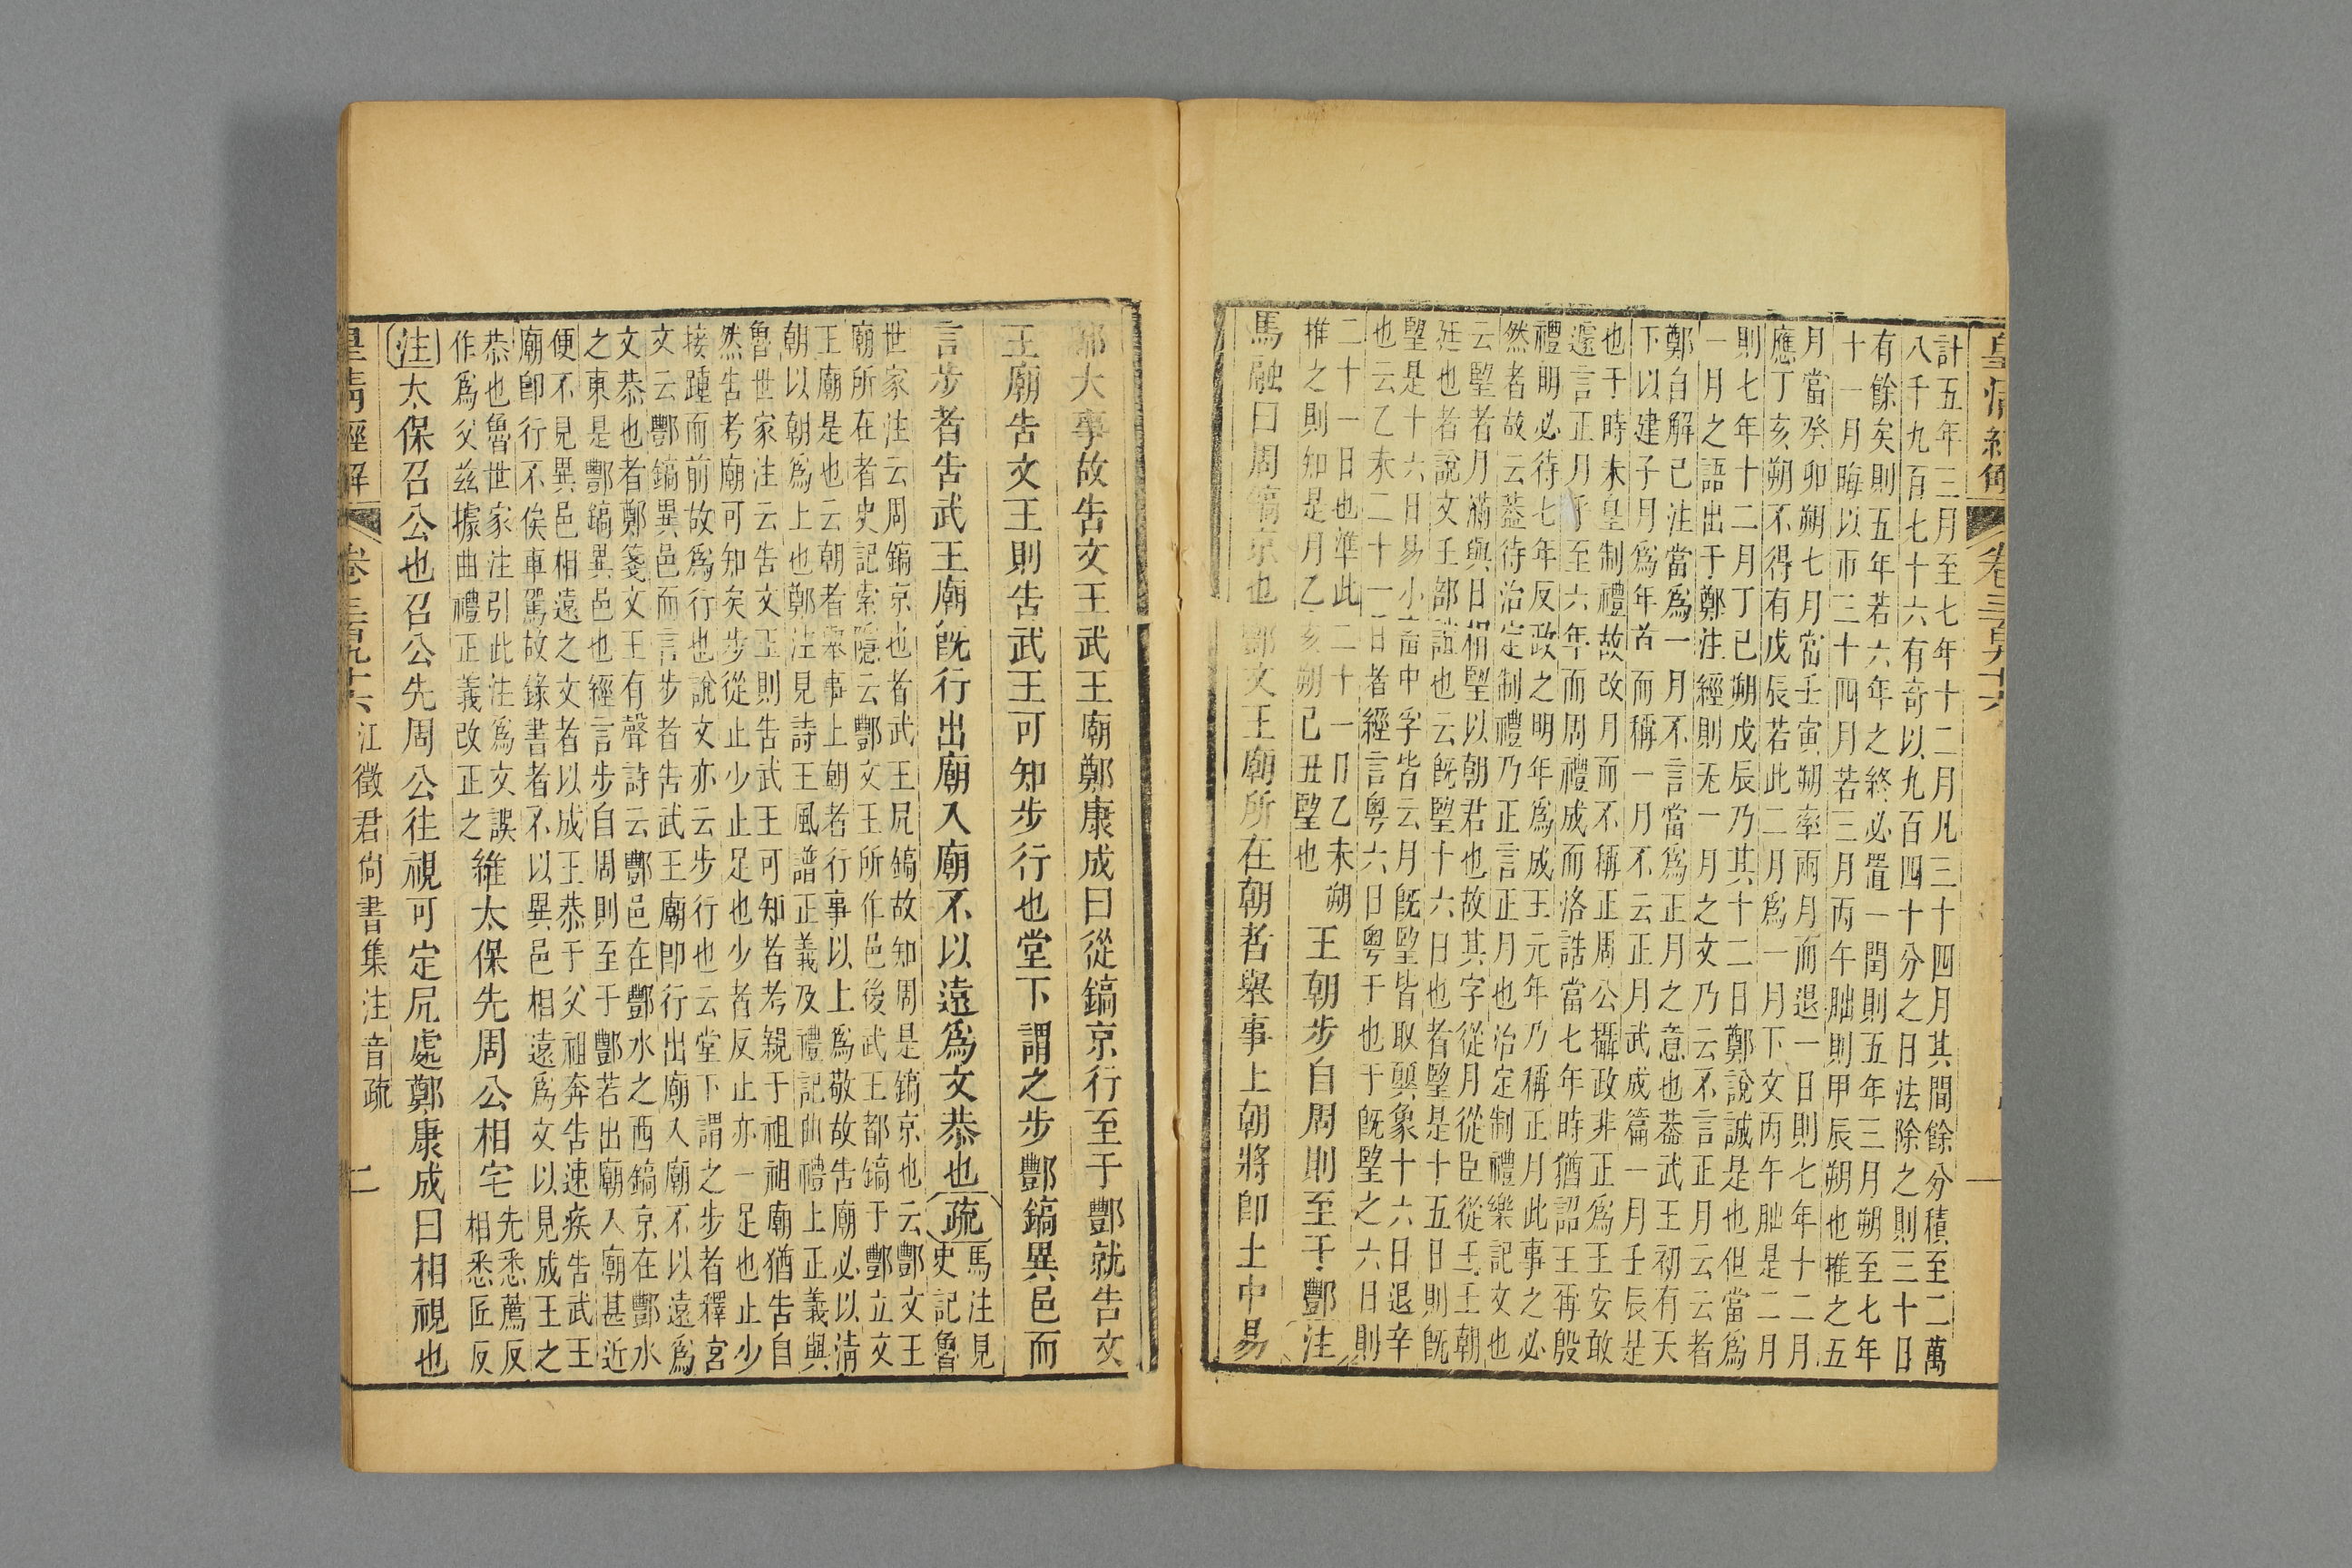 皇清經解 卷三百九十六 一
計五年三月至七年十二月凡三十四月其間餘分積至二萬
八千九百七十六有奇以九百四十分之日法除之則三十日
有餘矣則五年若六年之終必置一閏則五年三月朔至七年
十一月晦以帀三十四月若三月丙午朏則甲辰朔也推之五
月當癸卯朔七月當壬寅朔率兩月而退一日則七年十二月
應丁亥朔不得有戊辰若此二月爲一月下文丙午朏是二月
則七年十二月丁巳朔戊辰乃其十二日鄭說誠是也但當爲
一月之語出于鄭注經則无一月之文乃云不言正月云云者
鄭自解己注當爲一月不言當爲正月之意也葢武王初有天
下以建子月爲年首而稱一月不云正月武成篇一月壬辰是
也于時未皇制禮故改月而不稱正周公攝政非正爲王安敢
遽言正月乎至六年而周禮成而洛誥當七年時猶詔王再殷
禮明必待七年反政之明年爲成王元年乃稱正月此事之必
然者故云葢待治定制禮乃正言正月也治定制禮樂記文也
云朢者月滿與日相朢以朝君也故其字從月從臣從𡈼𡈼朝
廷也者說文𡈼部誼也云旣朢十六日也者朢是十五日則旣
朢是十六日易小畜中孚皆云月旣朢皆取㢲象十六日退辛
也云乙未二十一日者經言粵六日粵于也于旣朢之六日則
二十一日也準此二十一日乙未朔
推之則知是月乙亥朔己丑朢也
王朝步自周則至于酆注
馬融曰周鎬京也酆文王廟所在朝者舉事上朝將卽土中易
都大事故告文王武王廟鄭康成曰從鎬京行至于酆就告文
王廟告文王則告武王可知步行也堂下謂之步酆鎬異邑而
言步者告武王廟旣行出廟入廟不以遠爲文恭也疏
馬注見
史記魯
世家注云周鎬京也者武王凥鎬故知周是鎬京也云酆文王
廟所在者史記索隱云酆文王所作邑後武王都鎬于酆立文
王廟是也云朝者舉事上朝者行事以上爲敬故告廟必以淸
朝以朝爲上也鄭注見詩王風譜正義及禮記曲禮上正義與
魯世家注云告文王則告武王可知者考親于祖祖廟猶告自
然告考廟可知矣步從止少止足也少者反止亦一足也止少
接踵而前故爲行也說文亦云步行也云堂下謂之步者釋宮
文云酆鎬異邑而言步者告武王廟卽行出廟入廟不以遠爲
文恭也者鄭箋文王有聲詩云酆邑在酆水之西鎬京在酆水
之東是酆鎬異邑也經言步自周則至于酆若出廟入廟甚近
便不見異邑相遠之文者以成王恭于父祖奔告速疾告武王
廟卽行不俟車駕故錄書者不以異邑相遠爲文以見成王之
恭也魯世家注引此注爲文誤
作爲父茲據曲禮正義改正之
維太保先周公相宅
先悉薦反
相悉匠反
注太保召公也召公先周公往視可定凥處鄭康成曰相視也
皇淸經解 卷三百九十六 江徵君尙書集注音疏 二